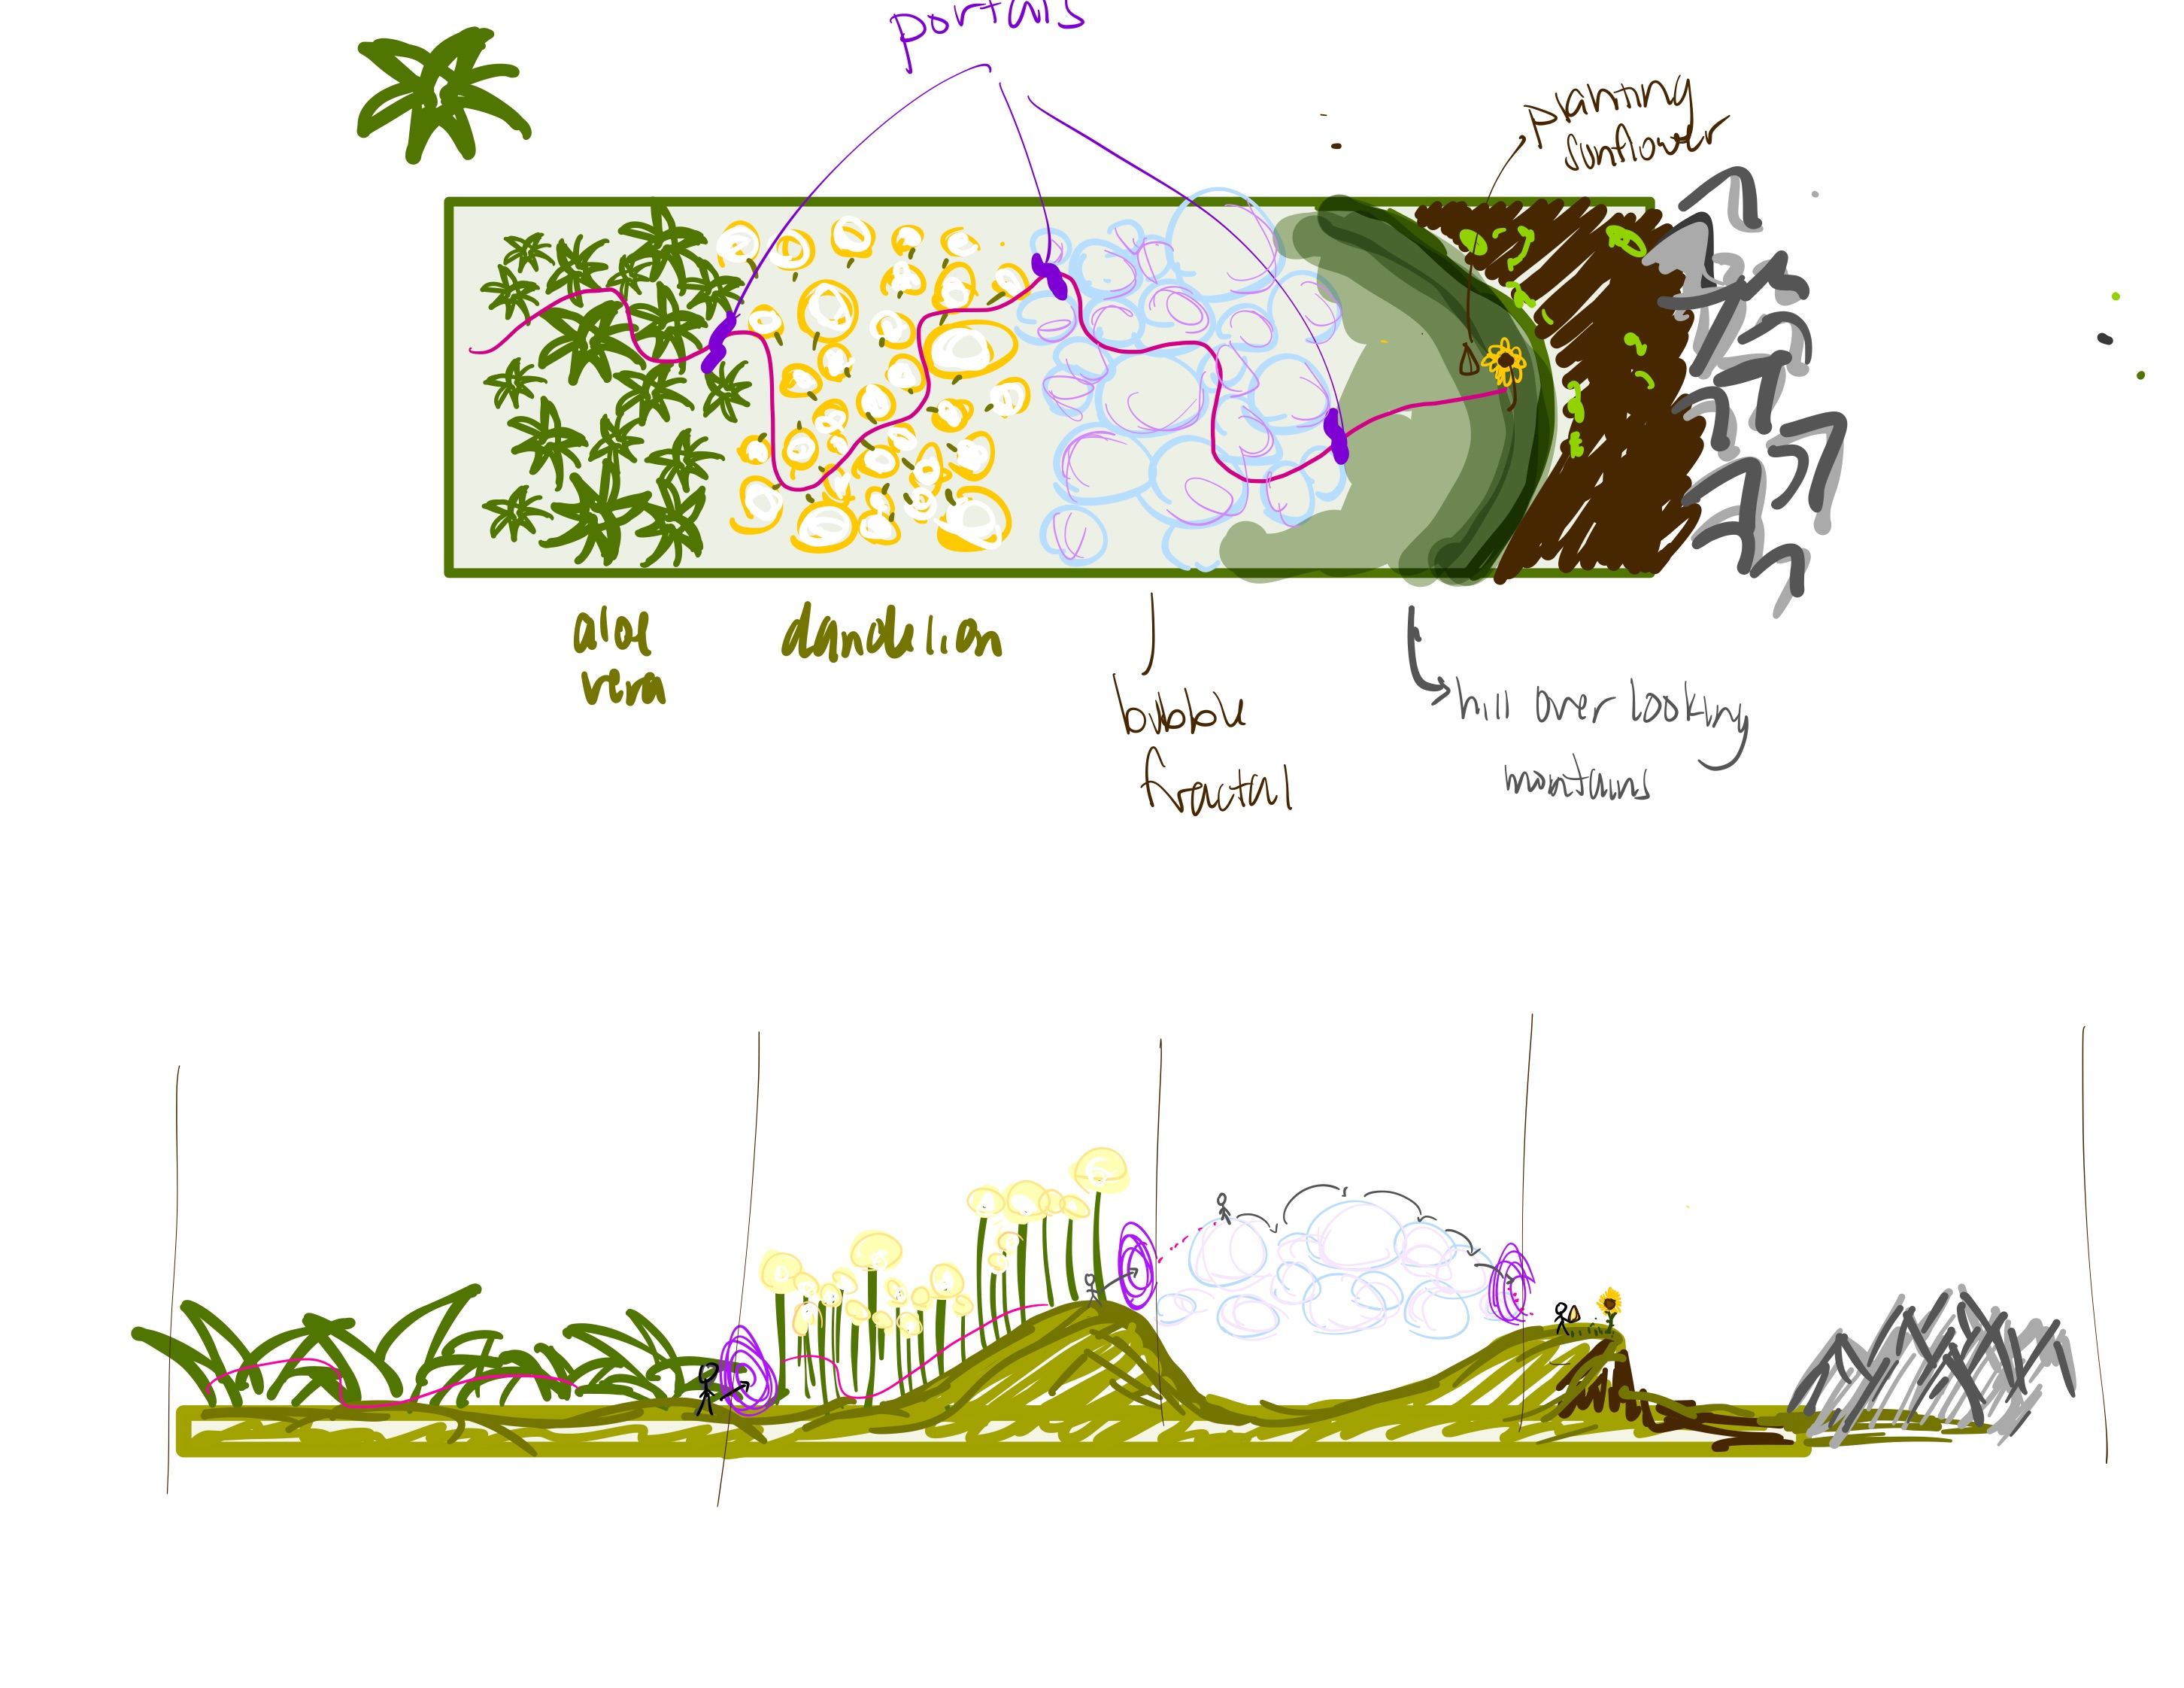 portals
planting
sunflower
aloe
vera
dandelion
bubble
fractal
hill over looking
mountains